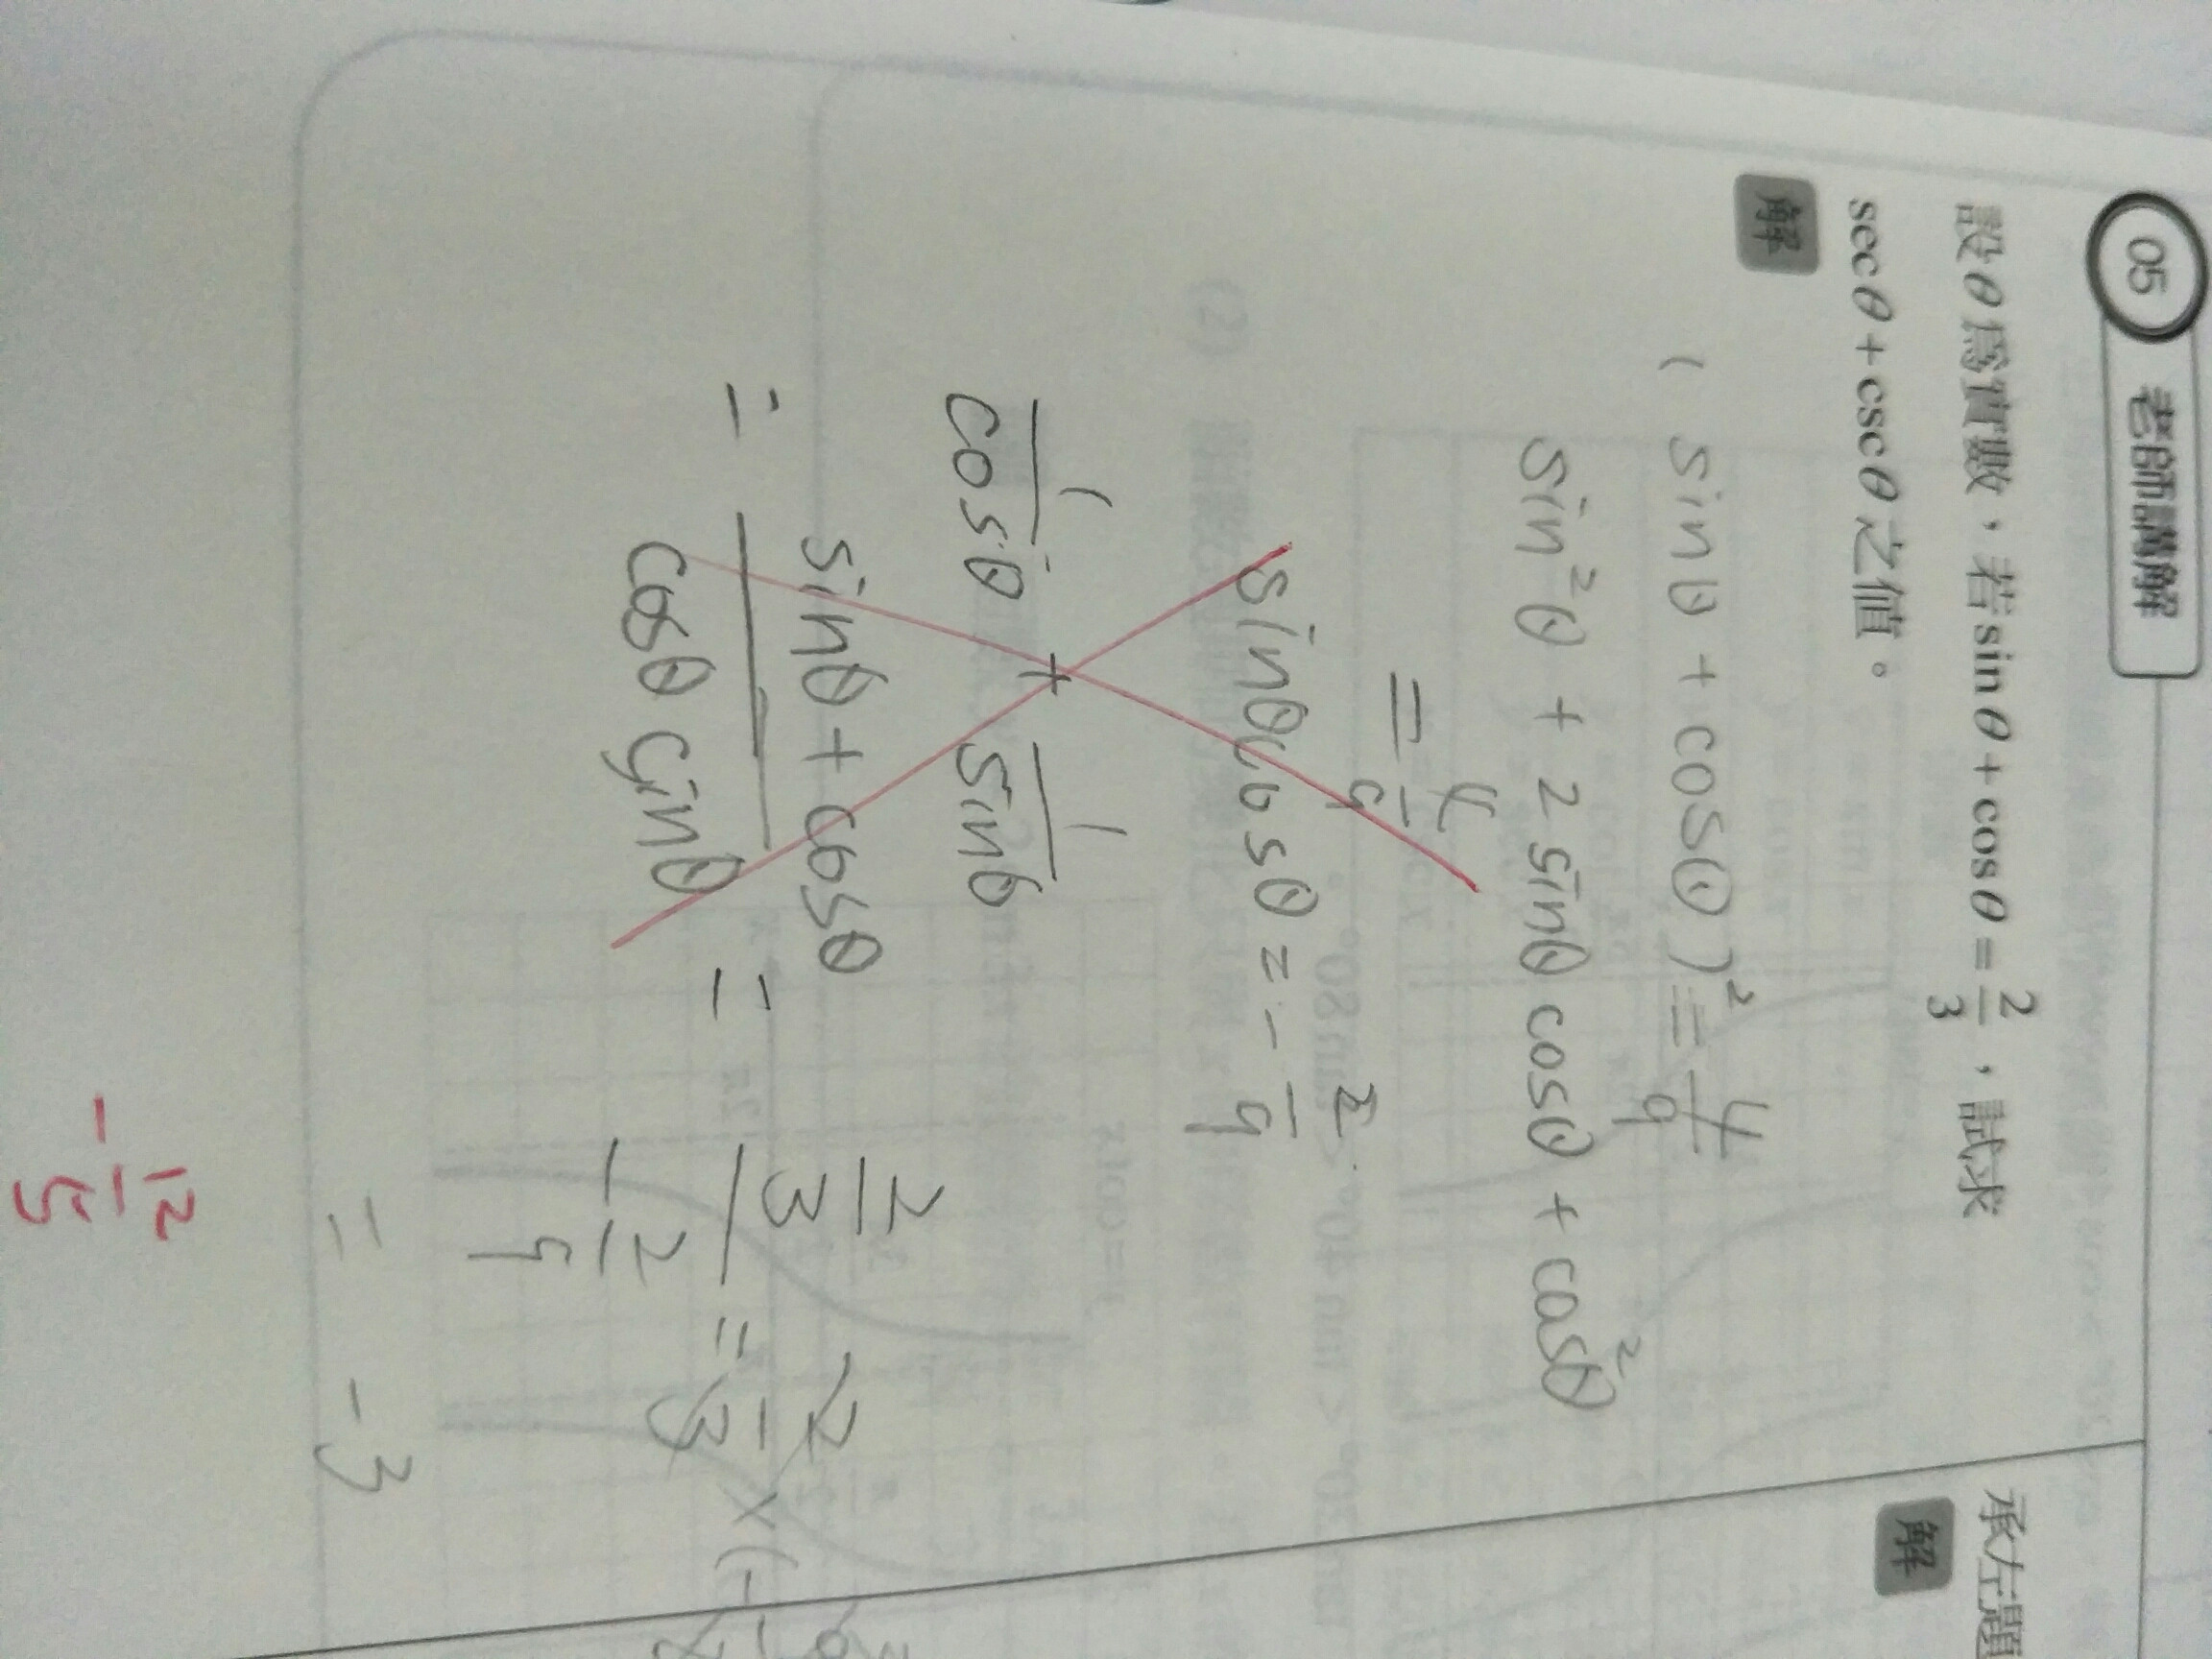 05 老師講解
設θ為實數，若sinθ+cosθ=2/3，試求
secθ+cscθ之值。
解
(sinθ+cosθ)²=4/9
sin²θ+2sinθcosθ+cos²θ
=4/9
sinθcosθ=-2/9
1/cosθ + 1/sinθ
= (sinθ+cosθ)/(cosθsinθ) = (2/3)/(-2/9) = 2/3×(-9/2)
= -3
-12/5
承左題
解